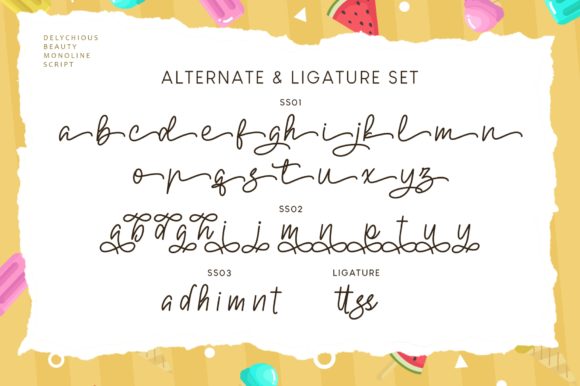 DELYCHIOUS
BEAUTY
MONOLINE
SCRIPT
ALTERNATE & LIGATURE SET
SS01
a b c d e f g h i j k l m n
o p q s t u x y z
SS02
a b d g h i j m n p t u y
SS03
a d h i m n t
LIGATURE
tt ss